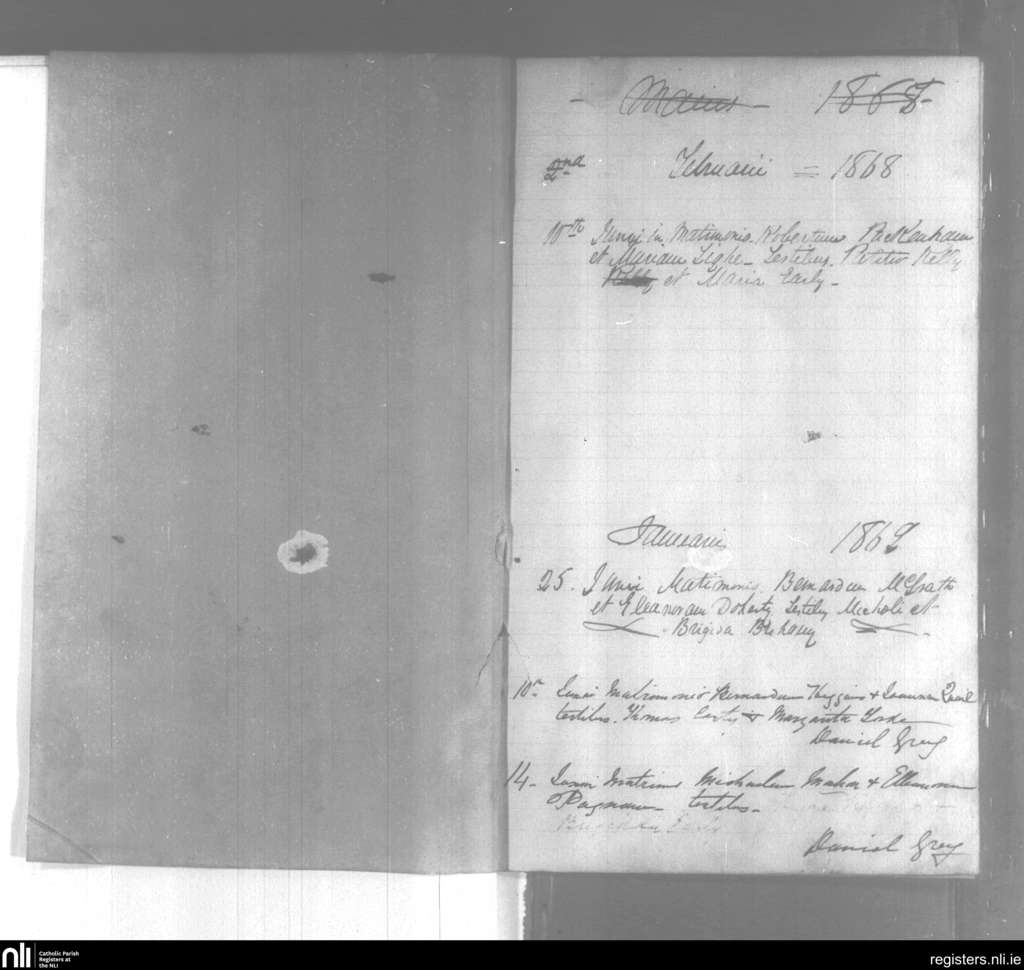 - Maius - 1868
2nd Februarii = 1868
10th Junxi in Matrimonio Robertum Packenham
et Mariam Tighe - Testibus Petrus Kelly
Kelly et Maria Early -
Januarii 1869
25. Junxi Matimonio Bernardum McGrath
et Eleanoram Doherty Testibus Micholi et
Brigida
10th Junxi Matrimonio Bernardum Higgins + Joannam
testibus. Thomas + Margarita
Daniel Grey
14 - Junxi Matrimo Michaelem Maher + Ellenoram
testibus -
Daniel Grey
nli
Catholic Parish
Registers at
the NLI
registers.nli.ie